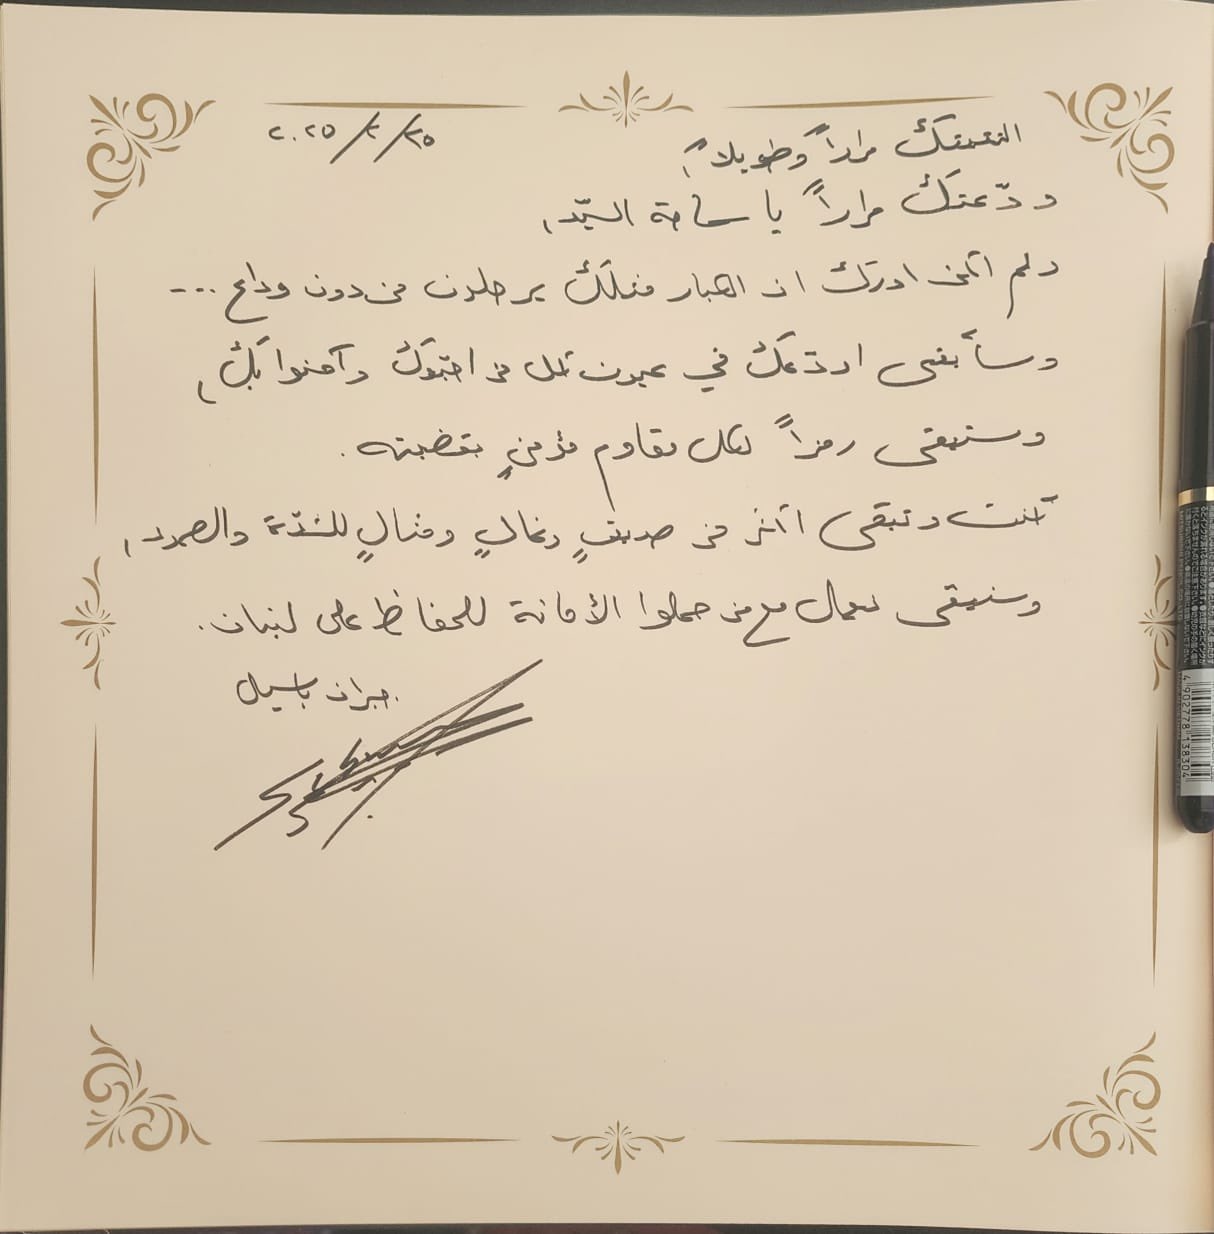 التقيتك مراراً وطويلاً، ٢٠٢٥/٢/٢٥
ودّعتك مراراً يا سماحة السيّد،
ولم أكن ادرك ان الكبار مثلك يرحلون من دون وداع ...
وسأبقى اودّعك في عيون كل من احبّوك وآمنوا بك،
وستبقى رمزاً لكل مقاوم مؤمنٍ بقضيته.
كنت وتبقى اكثر من صديقٍ وغالٍ ومثالٍ للشدّة والصمود،
وسنبقى نعمل مع من حملوا الأمانة للحفاظ على لبنان.
جبران باسيل
4 902778 138304